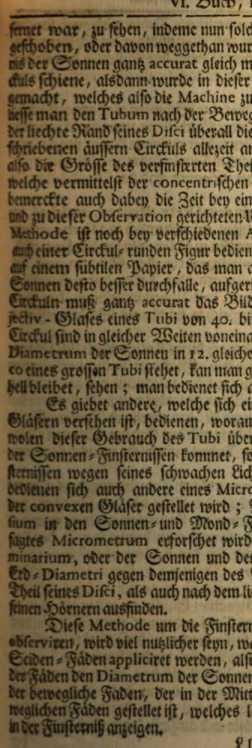 VI. Buch,
fernet war, zu sehen, indeme nun solch
geschoben, oder davon weggethan wur
der Sonnen gantz accurat gleich
schiene, alsdann wurde in dieser
gemacht, welches also die Machine zu
man den Tubum nach der Beweg
der liechte Rand seines Disci überall die
schriebenen äussern Circkuls allezeit
also die Grösse des verfinsterten Thei
welche vermittelst der concentrischen
bemerckte auch dabey die Zeit bey ein
und zu dieser Observation gerichteten
Methode ist noch bey verschiedenen
auch einer Circkul-runden Figur bedien
auf einem subtilen Papier, das man
Sonnen desto besser durchfalle, aufger
Circkuln muß gantz accurat das Bild
jectiv-Glases eines Tubi von 40. bi
Circkul sind in gleicher Weiten voneina
Diametrum der Sonnen in 12. gleiche
eines grossen Tubi stehet, kan man
hell bleibet, sehen; man bedienet sich
Es giebet andere, welche sich ei
Gläsern versehen ist, bedienen, worau
wolen dieser Gebrauch des Tubi über
der Sonnen-Finsternissen kommet, so
sternissen wegen seines schwachen Lich
bedienen sich auch andere eines Micro
der convexen Gläser gestellet wird;
in den Sonnen- und Mond-F
sagtes Micrometrum erforschet wird
minarium, oder der Sonnen und de
Erd-Diametri gegen demjenigen des
Theil seines Disci, als auch nach dem li
seinen Hörnern ausfinden.
Diese Methode um die Finstern
observiren, wird viel nutzlicher seyn, w
Seiden-Fäden appliciret werden, als
der Fäden den Diametrum der Sonnen
der bewegliche Faden, der in der Mitt
weglichen Fäden gestellet ist, welches
in der Finsterniß anzeigen.